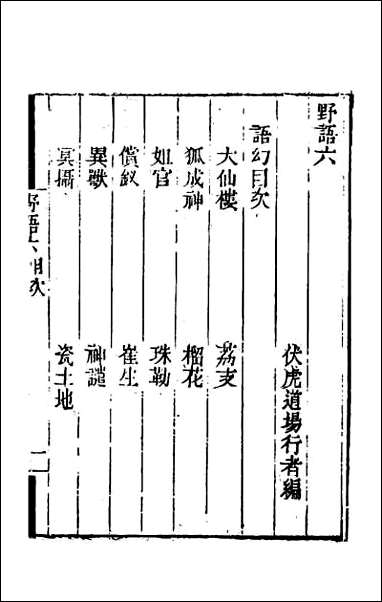 野語六
伏虎道場行者編
語幻目次
大仙樓　荔支
狐成神　榴花
姐官　珠勒
償釵　崔生
異獸　神譴
冥攝　瓷土地
野語六目次　二